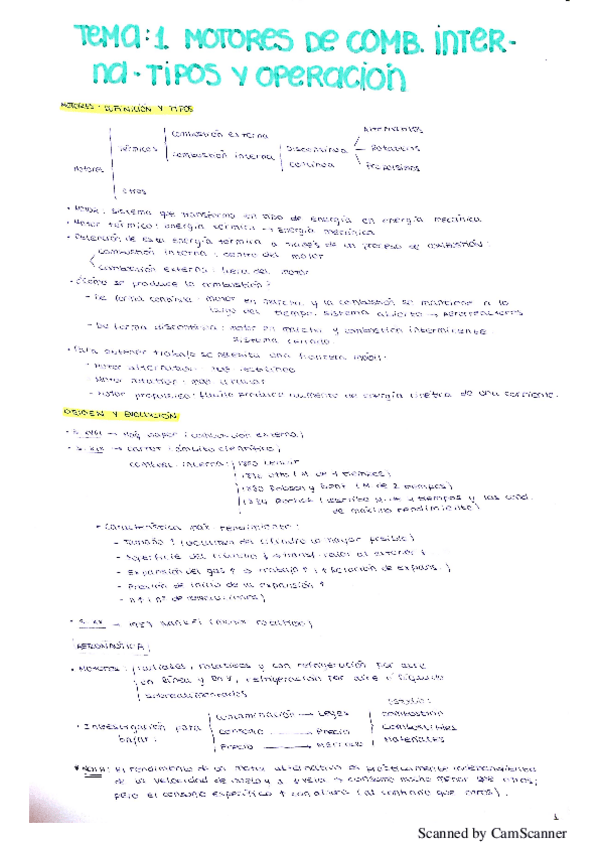 TEMA:1 MOTORES DE COMB. INTER-
NA - TIPOS Y OPERACIÓN
MOTORES: DEFINICIÓN Y TIPOS
combustión externa
Alternativos
Térmicos
combustión interna
Discontinua
Rotativos
continua
Propulsivos
Motores
Otros
• Motor: sistema que transforma un tipo de energía en energía mecánica
• Motor térmico: energía térmica → energía mecánica
• Obtención de esta energía térmica a través de un proceso de combustión:
combustión interna: dentro del motor
combustión externa: fuera del motor
• ¿Cómo se produce la combustión?
- De forma continua: motor en marcha y la combustión se mantiene a lo
largo del tiempo. Sistema abierto → Aerorreactores
- De forma discontinua: motor en marcha y combustión intermitente.
Sistema cerrado.
• Para obtener trabajo se necesita una frontera móvil:
- Motor alternativo:
- Motor rotativo:
- Motor propulsivo: fluido produce aumento de energía cinética de una corriente.
ORIGEN Y EVOLUCIÓN
• S. XVIII → Máq vapor (combustión externa)
• S. XIX → Carnot (ámbito científico)
combust. interna: 1860 Lenoir
Otto (M de 4 tiempos)
1880 Robson y (M de 2 tiempos)
4 tiempos y las cond.
de máximo rendimiento)
• Características máx. rendimiento:
- Tamaño ↑ (volumen del cilindro lo mayor posible)
- Superficie del cilindro ↓ (transf. calor al exterior ↓
- Expansión del gas ↑ → trabajo ↑ (↑ relación de expans.)
- Presión de inicio de la expansión ↑
- n ↑ (nº de revoluciones)
• S. XX → Wankel (motor rotativo)
AERONÁUTICA
• Motores: radiales, rotativos y con refrigeración por aire
en línea y en V, refrigeración por aire o líquido
sobrealimentados
Estudio:
contaminación → Leyes
combustión
• Investigación para
consumo → Precio
combustibles
bajar:
Precio → Mercado
Materiales
NOTA: El rendimiento de un motor alternativo es prácticamente independiente
de la velocidad de vuelo y a nivel → consumo mucho menor que otros;
pero el consumo específico ↑ con altura (al contrario que otros).
1
Scanned by CamScanner